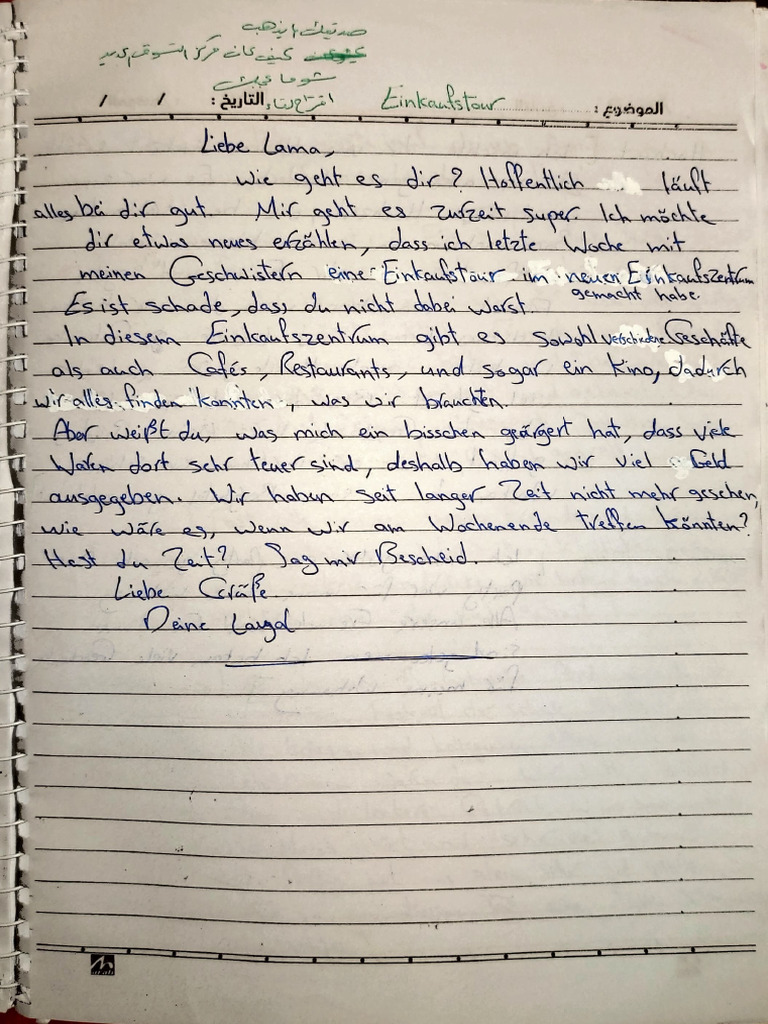 صديقتك لم يذهب
كيف كان مركز التسوق الجديد
شو ما عجبك
الموضوع : Einkaufstour اقتراح لقاء التاريخ : / /
Liebe Lama,
wie geht es dir? Hoffentlich läuft
alles bei dir gut. Mir geht es zurzeit super. Ich möchte
dir etwas neues erzählen, dass ich letzte Woche mit
meinen Geschwistern eine Einkaufstour im neuen Einkaufszentrum
gemacht habe.
Es ist schade, dass du nicht dabei warst.
In diesem Einkaufszentrum gibt es sowohl verschiedene Geschäfte
als auch Cafés, Restaurants, und sogar ein Kino, dadurch
wir alles finden konnten, was wir brauchten.
Aber weißt du, was mich ein bisschen geärgert hat, dass viele
Waren dort sehr teuer sind, deshalb haben wir viel Geld
ausgegeben. Wir haben seit langer Zeit nicht mehr gesehen,
wie wäre es, wenn wir am Wochenende treffen könnten?
Hast du Zeit? Sag mir Bescheid.
Liebe Grüße
Deine